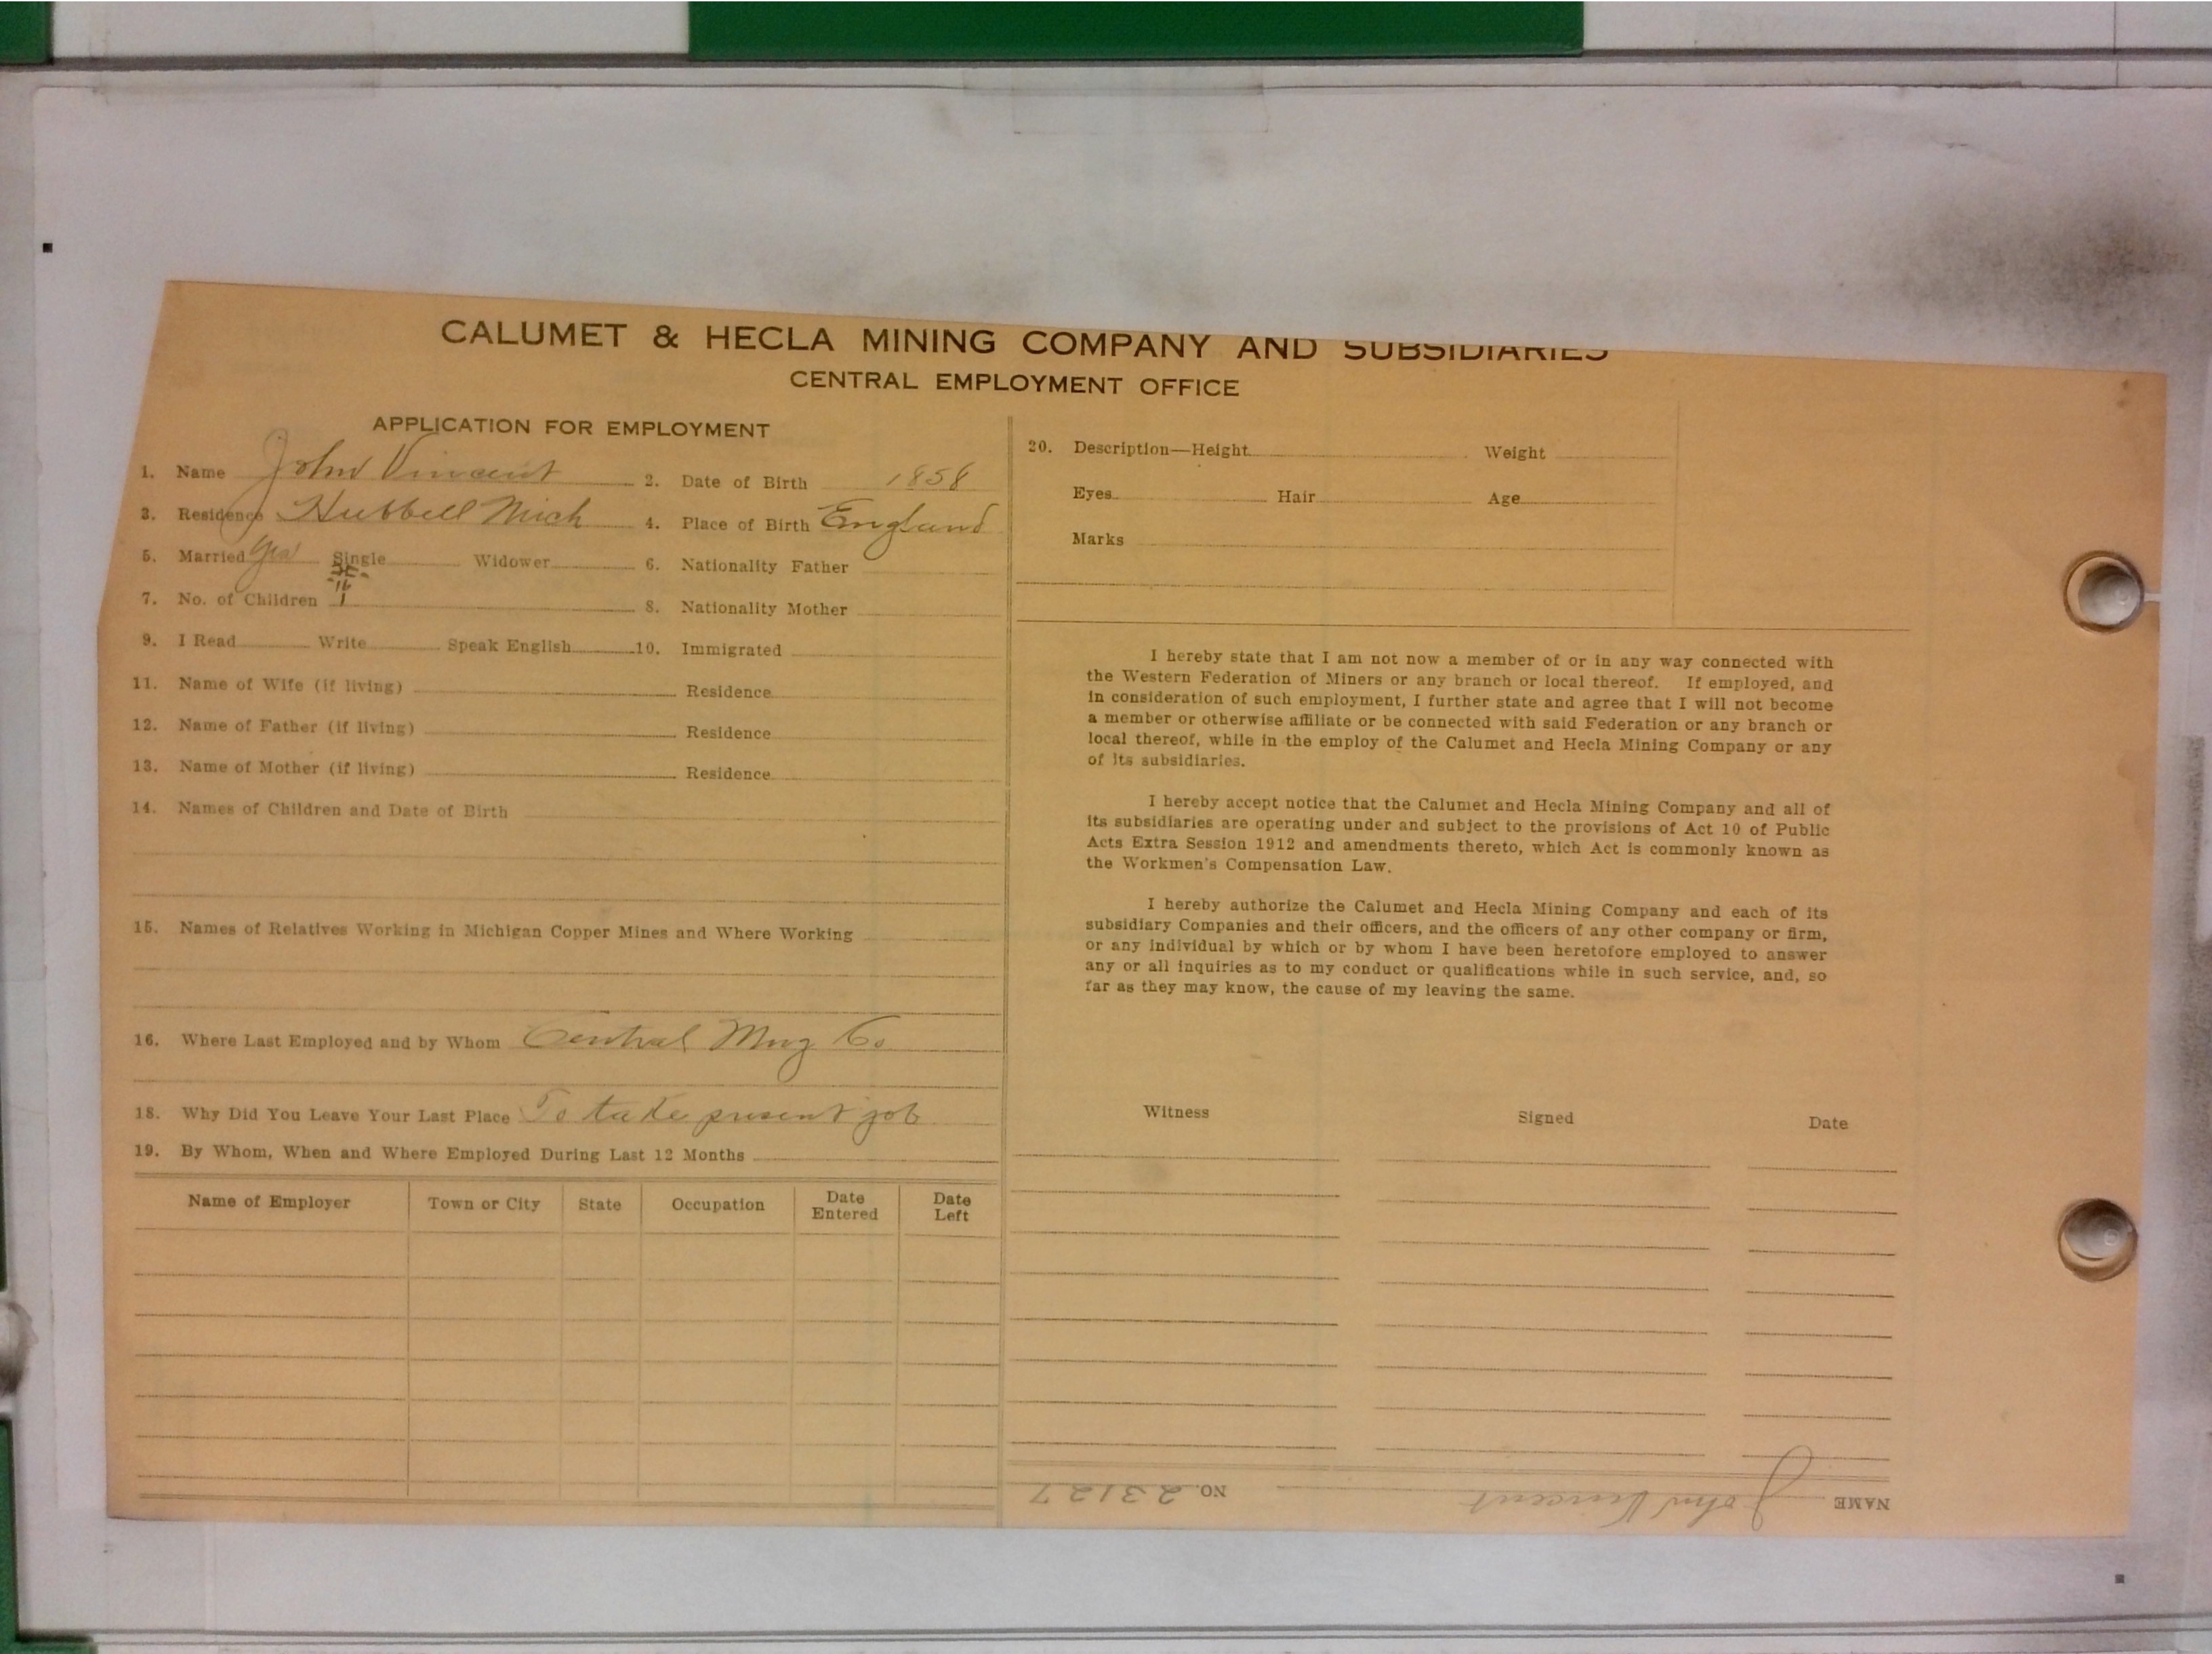 CALUMET & HECLA MINING COMPANY AND SUBSIDIARIES
CENTRAL EMPLOYMENT OFFICE
APPLICATION FOR EMPLOYMENT
1. Name John Vincent 2. Date of Birth 1858
3. Residence Hubbell Mich 4. Place of Birth England
5. Married Yes Single Widower 6. Nationality Father
7. No. of Children 1 8. Nationality Mother
9. I Read Write Speak English 10. Immigrated
11. Name of Wife (if living) Residence
12. Name of Father (if living) Residence
13. Name of Mother (if living) Residence
14. Names of Children and Date of Birth
15. Names of Relatives Working in Michigan Copper Mines and Where Working
16. Where Last Employed and by Whom Central Mng Co
18. Why Did You Leave Your Last Place To take present job
19. By Whom, When and Where Employed During Last 12 Months
Name of Employer Town or City State Occupation Date Entered Date Left
20. Description—Height Weight
Eyes Hair Age
Marks
I hereby state that I am not now a member of or in any way connected with
the Western Federation of Miners or any branch or local thereof. If employed, and
in consideration of such employment, I further state and agree that I will not become
a member or otherwise affiliate or be connected with said Federation or any branch or
local thereof, while in the employ of the Calumet and Hecla Mining Company or any
of its subsidiaries.
I hereby accept notice that the Calumet and Hecla Mining Company and all of
its subsidiaries are operating under and subject to the provisions of Act 10 of Public
Acts Extra Session 1912 and amendments thereto, which Act is commonly known as
the Workmen's Compensation Law.
I hereby authorize the Calumet and Hecla Mining Company and each of its
subsidiary Companies and their officers, and the officers of any other company or firm,
or any individual by which or by whom I have been heretofore employed to answer
any or all inquiries as to my conduct or qualifications while in such service, and, so
far as they may know, the cause of my leaving the same.
Witness Signed Date
NAME John Vincent NO. 23127